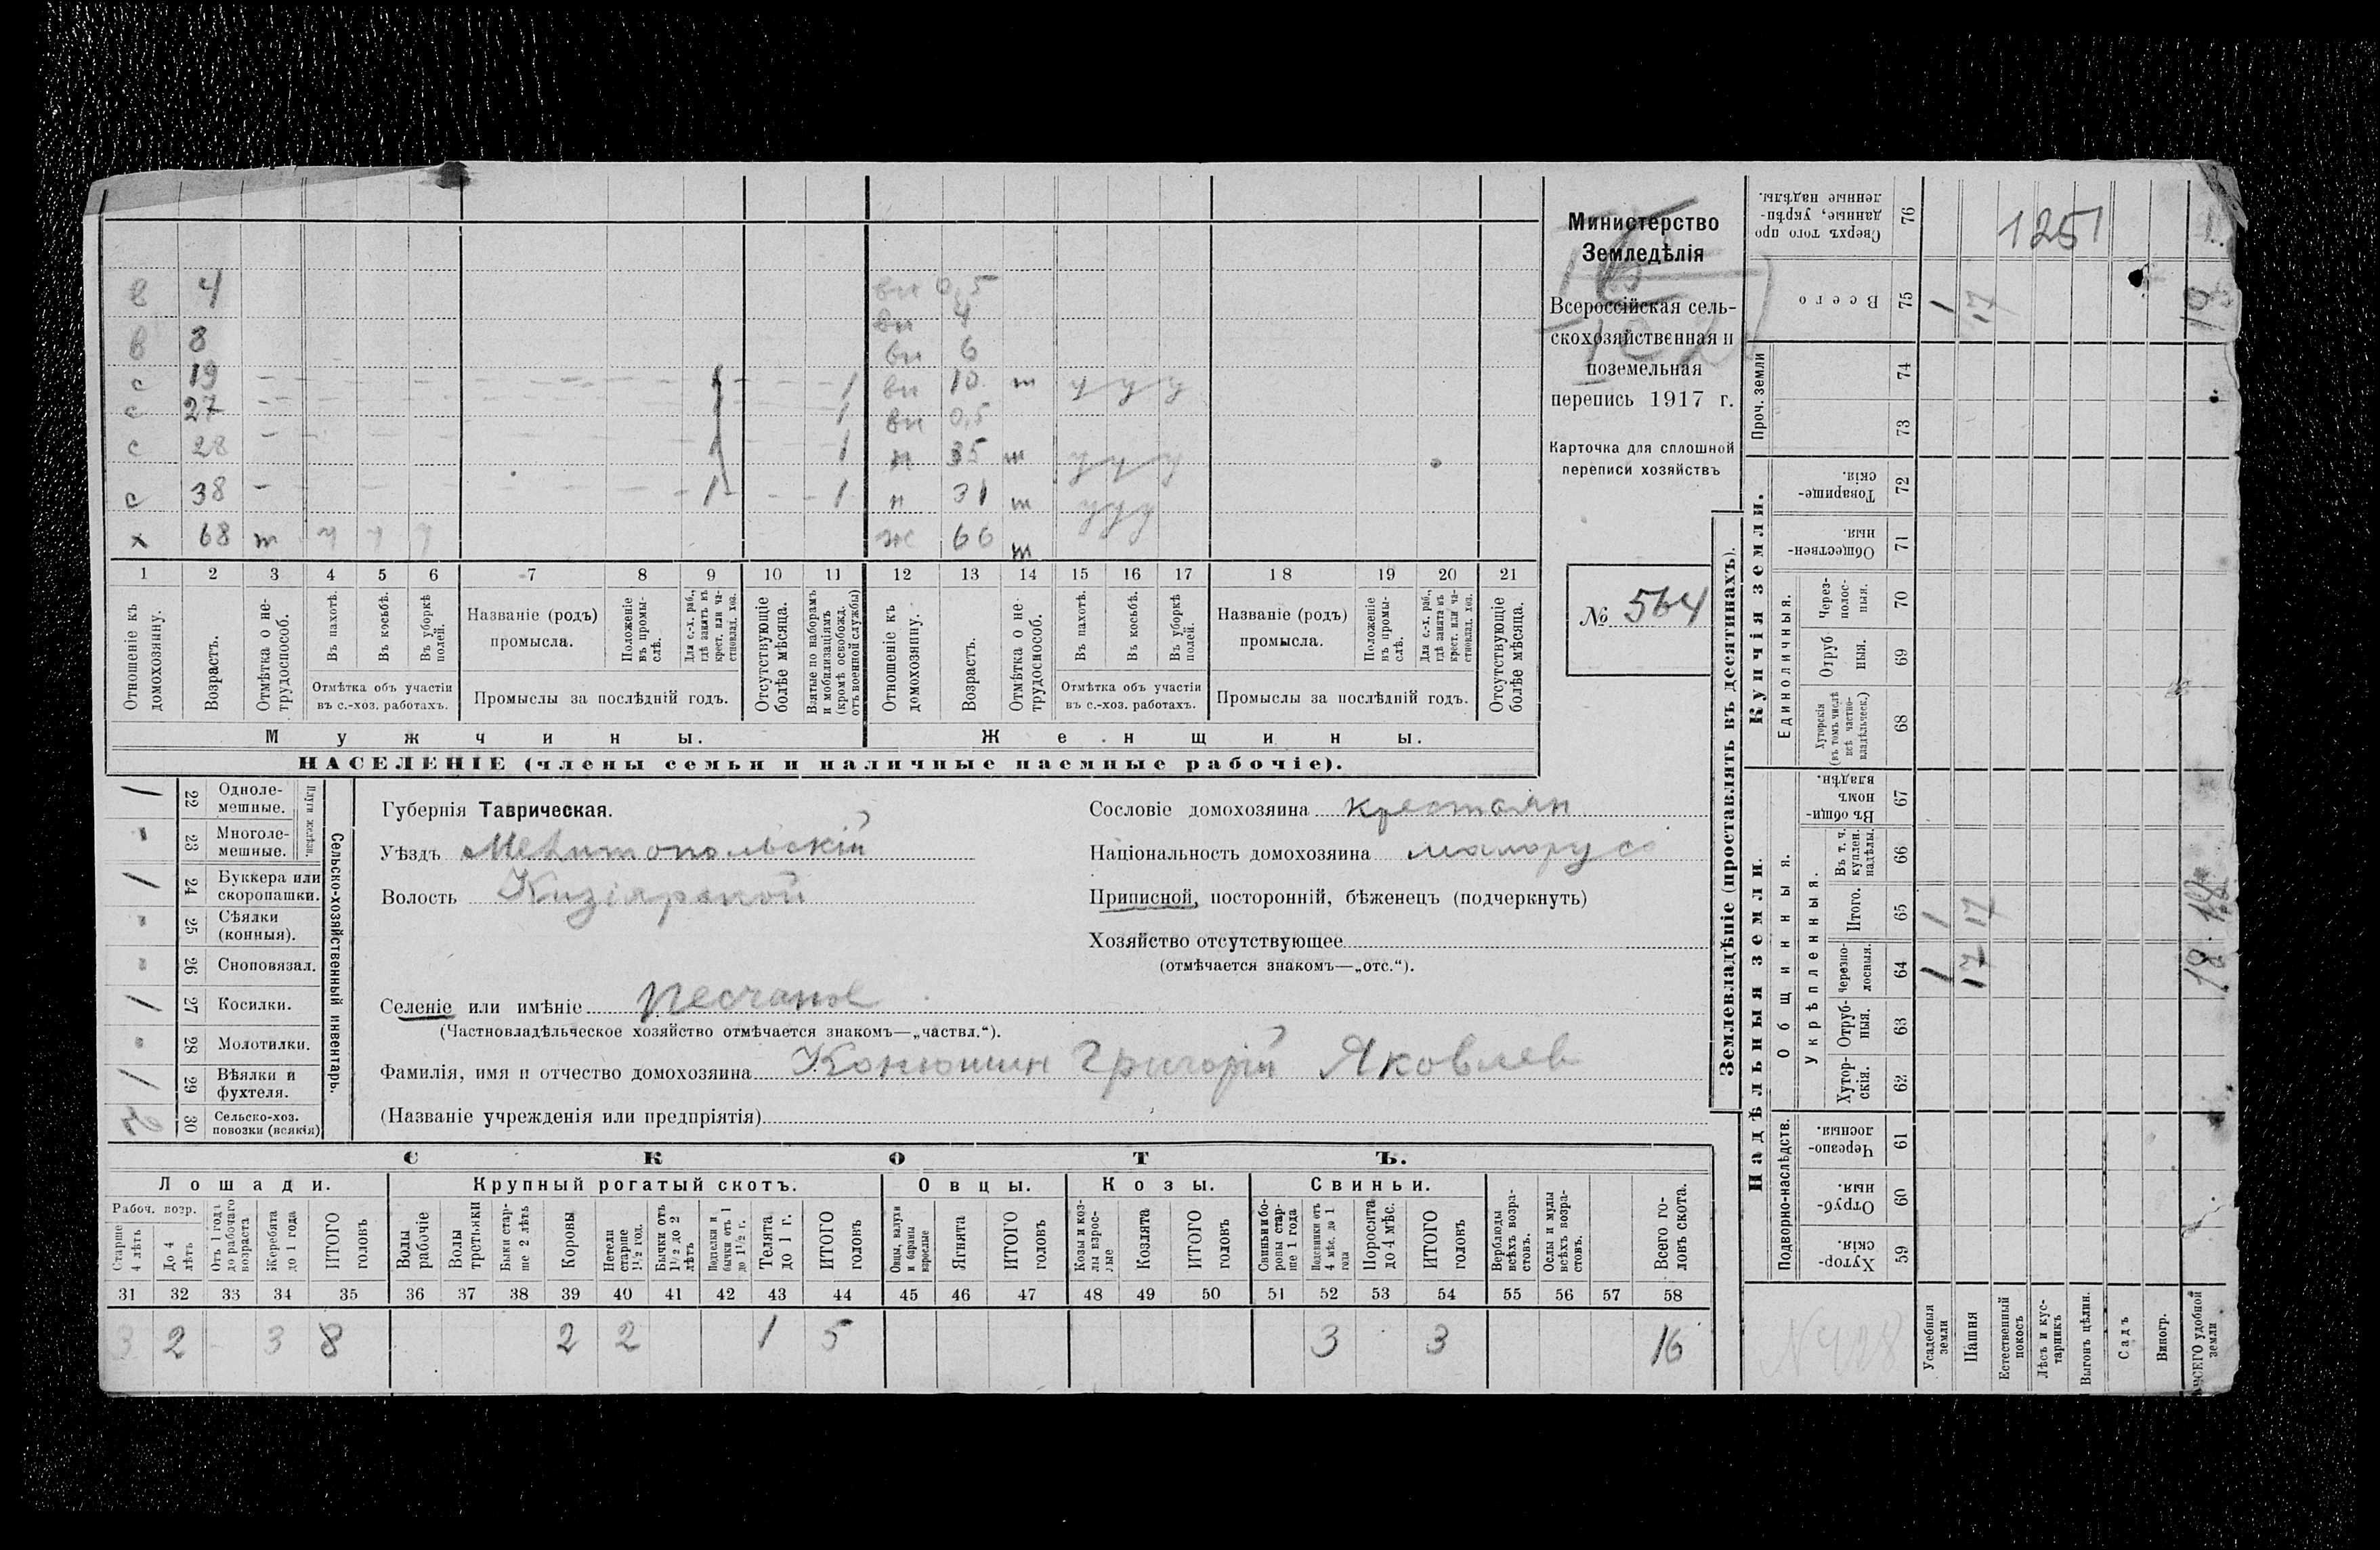 в 4 вн 0,5
вн 4
в 3 вн 6
с 19 — 1 1 вн 10 т у у у
с 27 — 1 1 вн 0,5
с 28 — 1 1 н 35 т у у у
с 38 — 1 1 н 31 т у у у
х 68 т ч ч ч ж 66 т
1 2 3 4 5 6 7 8 9 10 11 12 13 14 15 16 17 18 19 20 21
Отношеніе къ домохозяину.
Возрастъ.
Отмѣтка о нетрудоспособ.
Въ пахотѣ.
Въ косьбѣ.
Въ уборкѣ полей.
Отмѣтка объ участіи
въ с.-хоз. работахъ.
Названіе (родъ)
промысла.
Положеніе въ промыслѣ.
Для с.-х. раб., гдѣ занятъ въ крест. или частновлад. хоз.
Промыслы за послѣдній годъ.
Отсутствующіе болѣе мѣсяца.
Взятые по наборамъ и мобилизаціямъ (кромѣ освобожд. отъ военной службы)
Отношеніе къ домохозяину.
Возрастъ.
Отмѣтка о нетрудоспособ.
Въ пахотѣ.
Въ косьбѣ.
Въ уборкѣ полей.
Отмѣтка объ участіи
въ с.-хоз. работахъ.
Названіе (родъ)
промысла.
Положеніе въ промыслѣ.
Для с.-х. раб., гдѣ занята въ крест. или частновлад. хоз.
Промыслы за послѣдній годъ.
Отсутствующіе болѣе мѣсяца.
Мужчины. Женщины.
НАСЕЛЕНІЕ (члены семьи и наличные наемные рабочіе).
Министерство
Земледѣлія
Всероссійская сель-
скохозяйственная и
поземельная
перепись 1917 г.
Карточка для сплошной
переписи хозяйствъ
№ 564
Сельско-хозяйственный инвентарь.
Плуги желѣзн.
1 22 Одноле-
мешные.
- 23 Многоле-
мешные.
1 24 Буккера или
скоропашки.
" 25 Сѣялки
(конныя).
" 26 Сноповязал.
1 27 Косилки.
" 28 Молотилки.
1 29 Вѣялки и
фухтеля.
2 30 Сельско-хоз.
повозки (всякія)
Губернія Таврическая.
Уѣздъ Мелитопольскій
Волость Кизіярской
Селеніе или имѣніе Песчаное
(Частновладѣльческое хозяйство отмѣчается знакомъ—„частвл.“).
Фамилія, имя и отчество домохозяина Конюшин Григорій Яковлев
(Названіе учрежденія или предпріятія)
Сословіе домохозяина крестьян
Національность домохозяина малорусс
Приписной, посторонній, бѣженецъ (подчеркнуть)
Хозяйство отсутствующее
(отмѣчается знакомъ—„отс.“).
СКОТЪ.
Лошади. Крупный рогатый скотъ. Овцы. Козы. Свиньи.
Рабоч. возр.
Старше 4 лѣтъ
До 4 лѣтъ
Отъ 1 года до рабочаго возраста
Жеребята до 1 года
ИТОГО головъ
Волы рабочіе
Волы третьяки
Быки старше 2 лѣтъ
Коровы
Нетели старше 1½ год.
Бычки отъ 1½ до 2 лѣтъ
Подтелки и бычки отъ 1 до 1½ г.
Телята до 1 г.
ИТОГО головъ
Овцы, валухи и бараны взрослые
Ягнята
ИТОГО головъ
Козы и козлы взрослые
Козлята
ИТОГО головъ
Свиньи и боровы старше 1 года
Подсвинки отъ 4 мѣс. до 1 года
Поросята до 4 мѣс.
ИТОГО головъ
Верблюды всѣхъ возрастовъ.
Ослы и мулы всѣхъ возрастовъ.
Всего головъ скота.
31 32 33 34 35 36 37 38 39 40 41 42 43 44 45 46 47 48 49 50 51 52 53 54 55 56 57 58
3 2 - 3 8 2 2 1 5 3 3 16
Землевладѣніе (проставлять въ десятинахъ).
Купчія земли.
Надѣльныя земли.
Сверхъ того проданные, укрѣпленные надѣлы. 76
1251
Всего 75 1 17
Проч. земли 74
73
Товарищескія. 72
Общественныя. 71
Единоличныя.
Черезполосныя. 70
Отрубныя. 69
Хуторскія (въ томъ числѣ всѣ частновладѣльческ.) 68
Общинныя.
Въ общинномъ владѣн. 67
Укрѣпленныя.
Въ т. ч. куплен. надѣлы. 66
Итого. 65 1 17
Черезполосныя. 64 1 17 18
Отрубныя. 63
Хуторскія. 62
Подворно-наслѣдств.
Черезполосныя. 61
Отрубныя. 60
Хуторскія. 59
Усадебныя земли
Пашня
Естественный покосъ
Лѣсъ и кустарникъ
Выгонъ цѣлин.
Садъ
Виногр.
ВСЕГО удобной земли